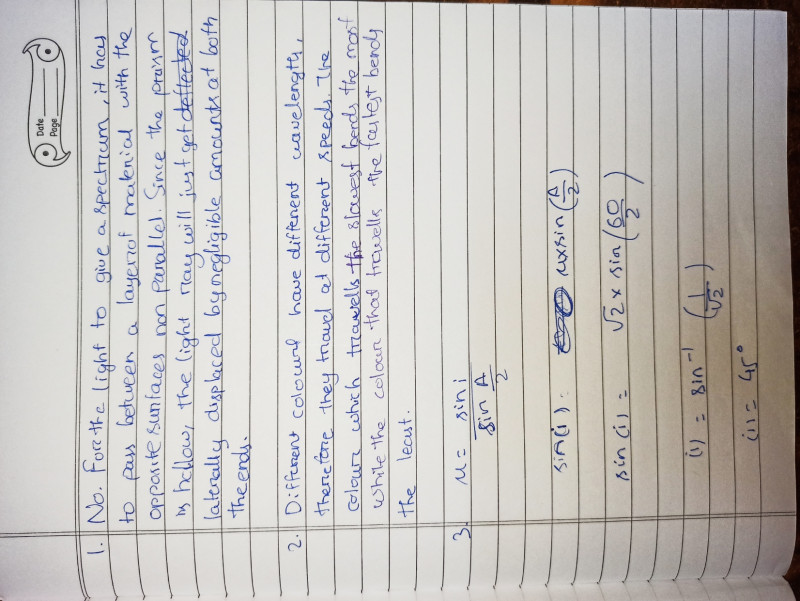 Date
Page
1. No. For the light to give a spectrum, it has
to pass between a layer of material with the
opposite surfaces non parallel. Since the prism
is hollow, the light ray will just get deflected
laterally displaced by negligible amounts at both
the ends.
2. Different colours have different wavelength,
therefore they travel at different speeds. The
colour which travells the slowest bends the most
while the colour that travells the fastest bends
the least.
3. μ = sin i / sin A/2
sin(i) = μ×sin(A/2)
sin(i) = √2 × sin(60/2)
(i) = sin⁻¹ (1/√2)
(i) = 45°